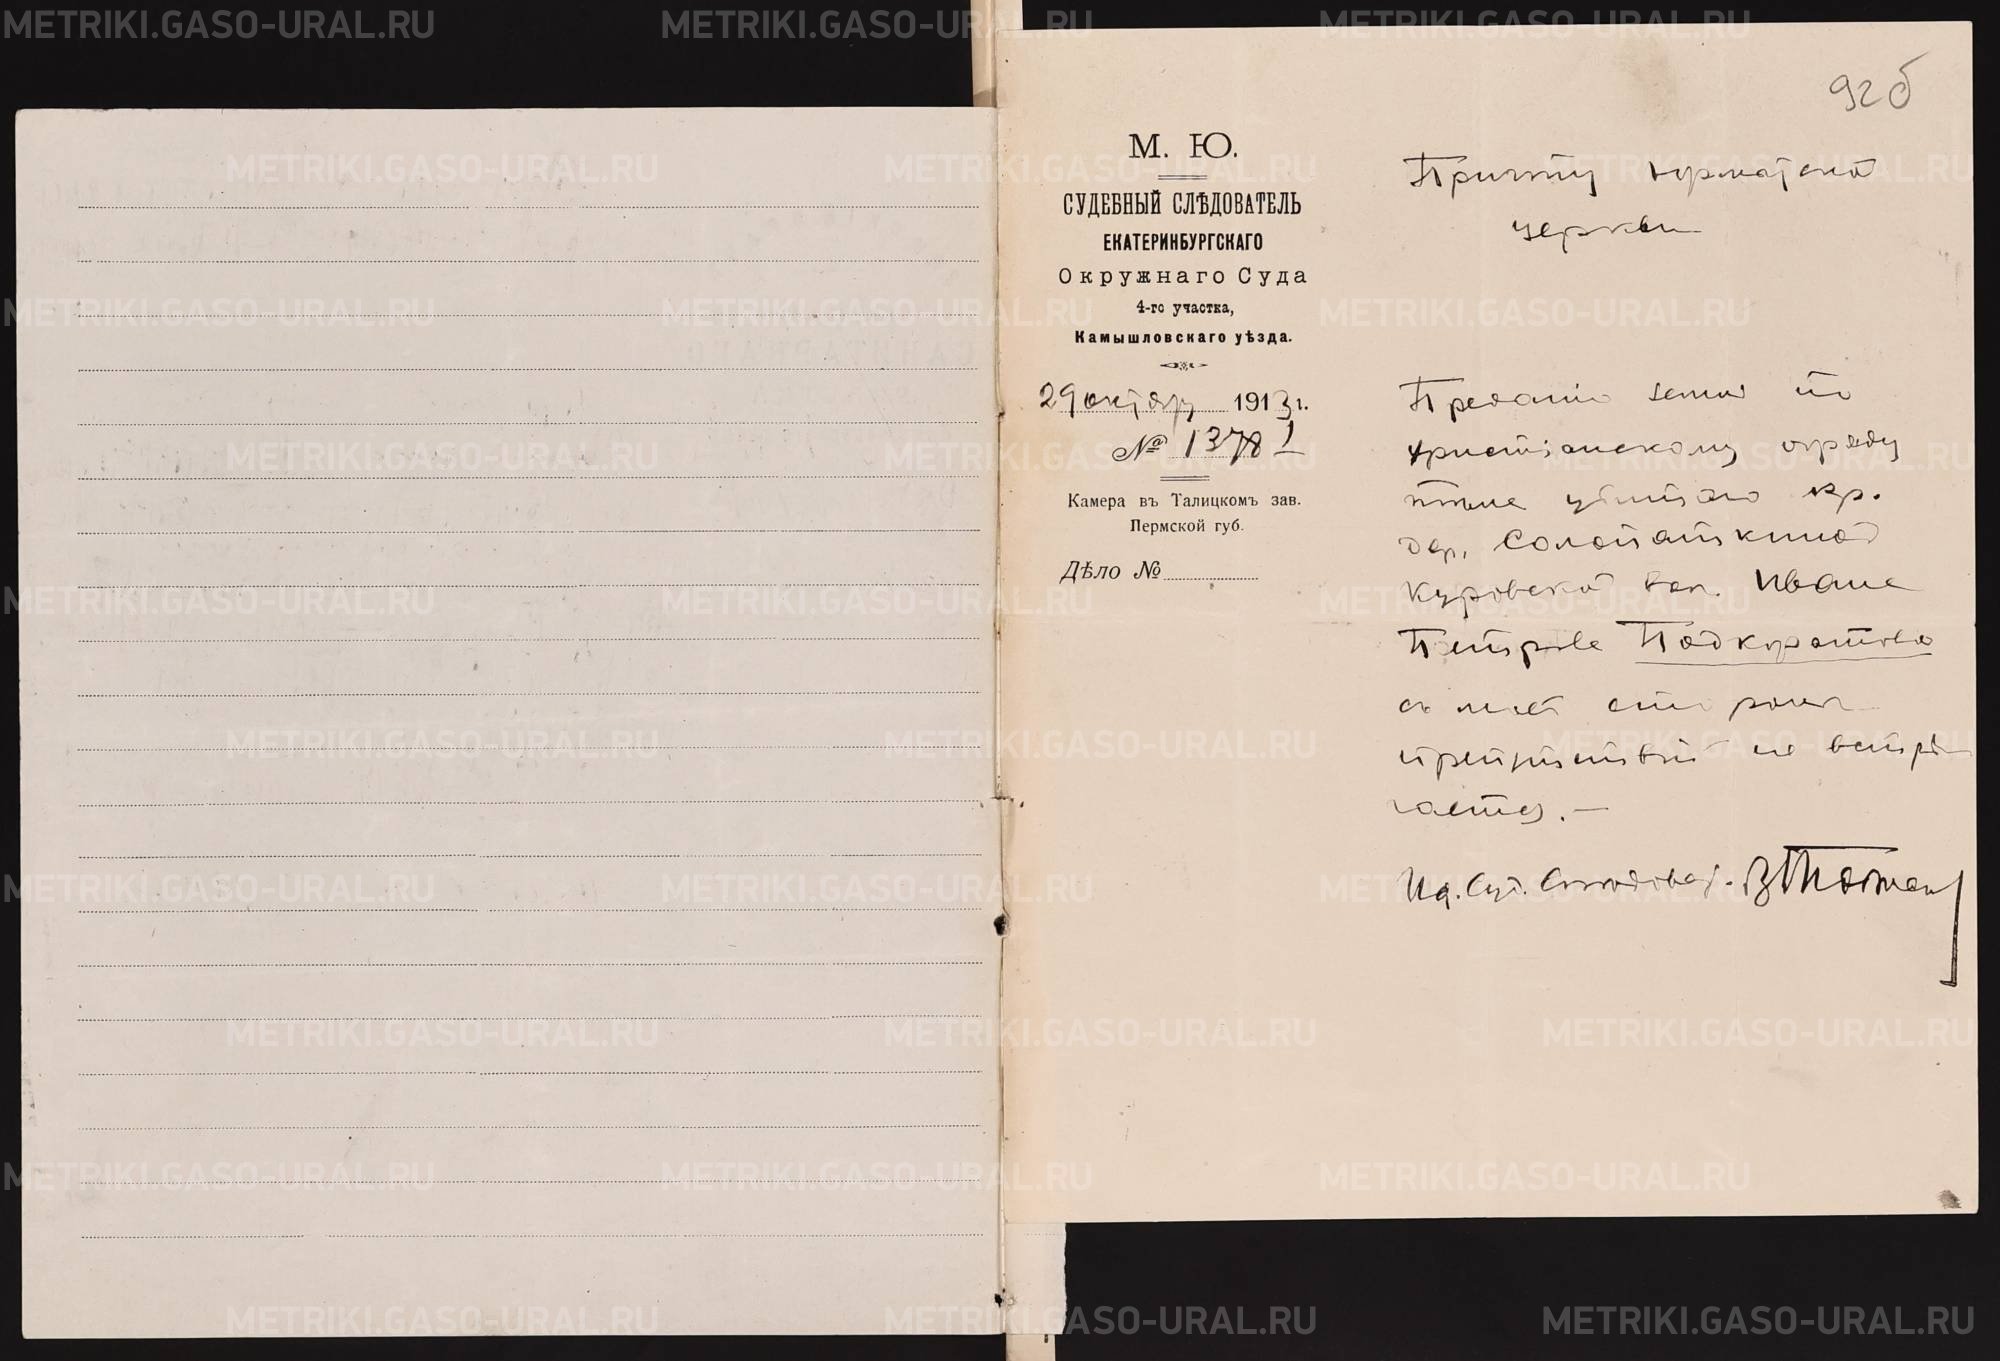 92б
М. Ю.
СУДЕБНЫЙ СЛѢДОВАТЕЛЬ
ЕКАТЕРИНБУРГСКАГО
Окружнаго Суда
4-го участка,
Камышловскаго уѣзда.
29 октября 1913 г.
№ 1378
Камера въ Талицкомъ зав.
Пермской губ.
Дѣло №
Причту
церкви
Преданію земли по
христіанскому обряду
тѣла убитаго кр.
дер. Солопаткиной
Куровской вол. Ивана
Петрова Подкорытова
съ моей стороны
препятствій не встрѣ
чается. —
И д. Суд. Следоват.
METRIKI.GASO-URAL.RU